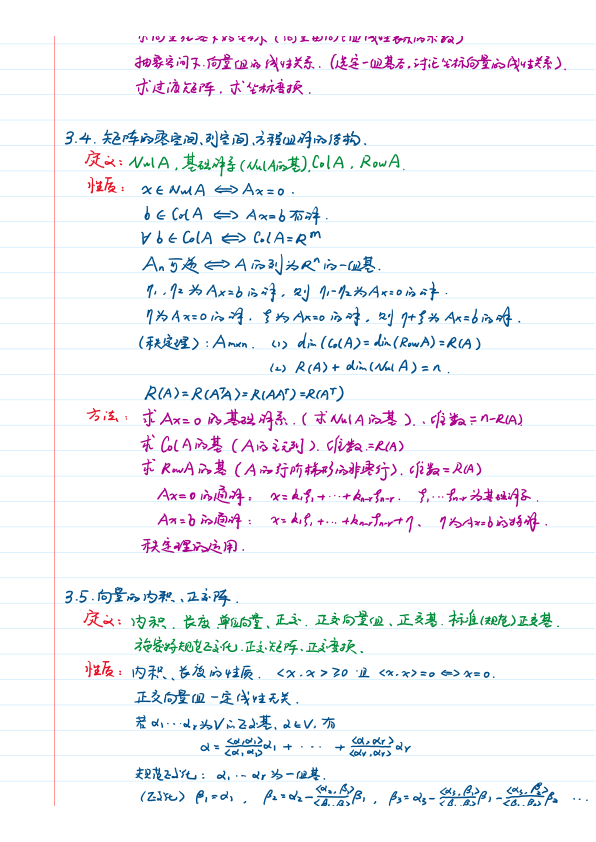 求向量在基下的坐标（向量由向量组线性表示的系数）
抽象空间下.向量组的线性关系.（选定一组基后,讨论坐标向量的线性关系）.
求过渡矩阵.求坐标变换.
3.4.矩阵的零空间、列空间、方程组解的结构.
定义：NulA，基础解系(NulA的基),ColA，RowA.
性质：x∈NulA ⟺ Ax=0.
b∈ColA ⟺ Ax=b有解.
∀b∈ColA ⟺ ColA=Rᵐ
An可逆 ⟺ A的列为Rⁿ的一组基.
η₁,η₂为Ax=b的解，则 η₁-η₂为Ax=0的解.
η为Ax=0的解.ξ为Ax=0的解，则η+ξ为Ax=b的解.
(秩定理)：Am×n. (1) dim(ColA)=dim(RowA)=R(A)
(2) R(A)+dim(NulA)=n.
R(A)=R(AᵀA)=R(AAᵀ)=R(Aᵀ)
方法：求Ax=0的基础解系.(求NulA的基)..维数=n-R(A)
求ColA的基（A的主元列）.维数=R(A)
求RowA的基（A的行阶梯形的非零行）.维数=R(A)
Ax=0的通解：x=k₁ξ₁+···+kn-rξn-r. ξ₁…ξn-r为基础解系.
Ax=b的通解：x=k₁ξ₁+...+kn-rξn-r+η、η为Ax=b的特解.
秩定理的应用.
3.5.向量的内积、正交阵.
定义：内积.长度.单位向量、正交.正交向量组、正交基.标准(规范)正交基.
施密特规范正交化.正交矩阵、正交变换、
性质：内积、长度的性质. <x,x>≥0 且 <x,x>=0⟺x=0.
正交向量组一定线性无关.
若α₁···αr为V的正交基，α∈V.有
α=<α,α₁>/<α₁,α₁>α₁ + ··· + <α,αr>/<αr,αr>αr
规范正交化：α₁…αr为一组基.
(正交化) β₁=α₁，β₂=α₂-<α₂,β₁>/<β₁,β₁>β₁，β₃=α₃-<α₃,β₁>/<β₁,β₁>β₁-<α₃,β₂>/<β₂,β₂>β₂ ···